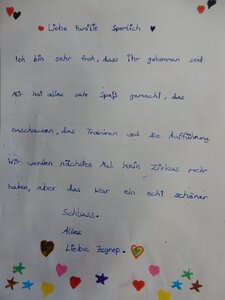 Liebe Familie Sperlich
Ich bin sehr froh, dass ihr gekommen seit
Mir hat alles sehr Spaß gemacht, das
zuschauen, das Trainiren und die Aufführung
Wir werden nächstes Mal kein Zirkus mehr
haben, aber das war ein echt schöner
Schluss.
Alles
Liebe